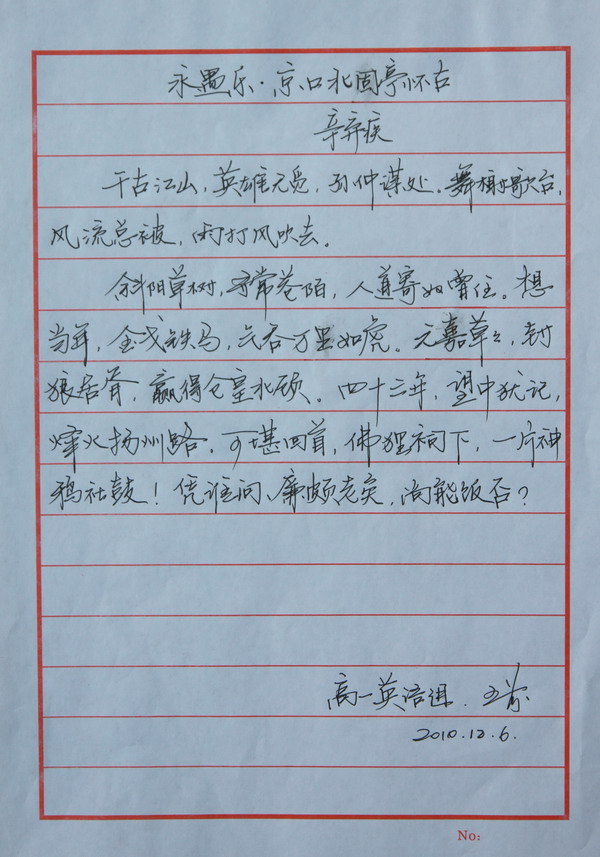 永遇乐·京口北固亭怀古
辛弃疾
千古江山，英雄无觅，孙仲谋处。舞榭歌台，
风流总被，雨打风吹去。
斜阳草树，寻常巷陌，人道寄奴曾住。想
当年，金戈铁马，气吞万里如虎。元嘉草々，封
狼居胥，赢得仓皇北顾。四十三年，望中犹记，
烽火扬州路。可堪回首，佛狸祠下，一片神
鸦社鼓！凭谁问、廉颇老矣，尚能饭否？
高一英语组．王
2010.12.6.
No: